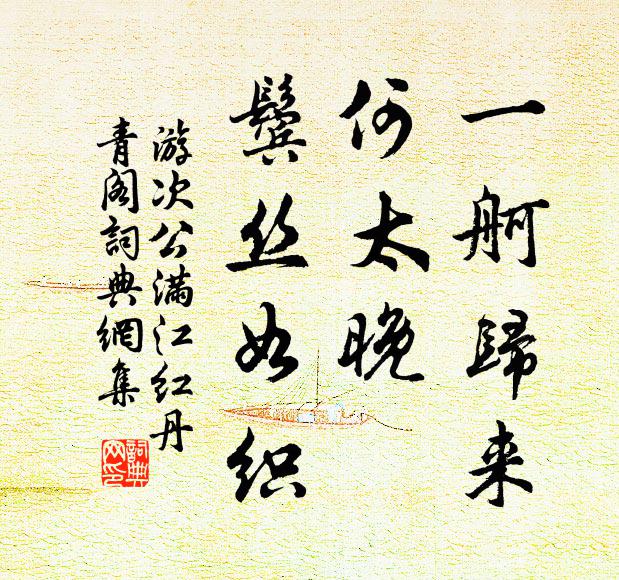 一舸歸来
何太晚
鬓丝如织
游次公满江红丹
青阁詞典網集
詞典网印